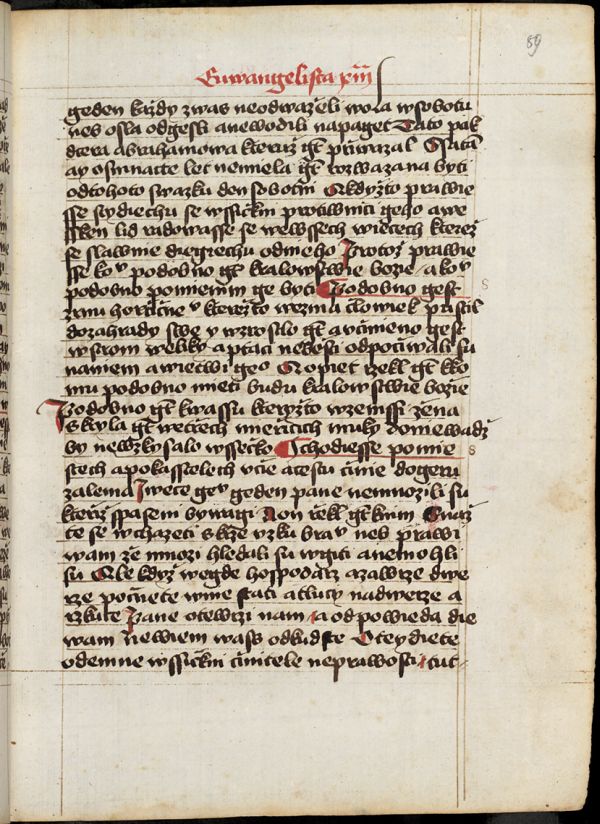 89
Euwangelista xiii
geden každy zwas neodwaželi wola wsobotu
neb osla odgesli anewodili napaget Tato pak
dcera abrahamowa kteruž gt přiwazal Satan
ay osmnacte let nemiela gt rozwazana byti
odtohoto swazku den sobotni A kdyžto prawie
sse stydiechu se wssickni protiwnici geho awe
ssken lid radowasse se wewssech wiecech kterež
se slawnie diegiechu odnieho Protož prawie
sse komu podobno gt kralowstwie božie a komu
podobno pomienim ge byti Podobno gest
zrnu horčičnemu kterežto wezma člowiek pustil
dozahrady swe y wzrostlo gt a včinieno gest
wstrom weliky a ptaci nebesti odpočiwali su
naniem a wietwi geho A opiet řekl gt kko
mu podobno mieti budu kralowstwie božie
Podobno gt kwassu kteryžto wzemssi žena
skryla gt wetřech mieřicich muky doniewadž
by newzkysalo wssecko I chodiesse po mie
stech a po kasstelech vče a cestu čině do geru
zalema I wece gemu geden pane nemnozili su
kteřiž spaseni bywagi A on řekl gt knim Snaž
te se wchazeti skrze vzku branu neb prawi
wam že mnozi hledali su wgiti anemohli
su Ale když wegde hospodarz azawrze dwe
rze počnete wnie stati atluci nadwerze a
rzkuce Pane otewrzi nam a odpowieda die
wam newiem wass odkud ste Oteydiete
odemne wssickni činitele neprawosti tut